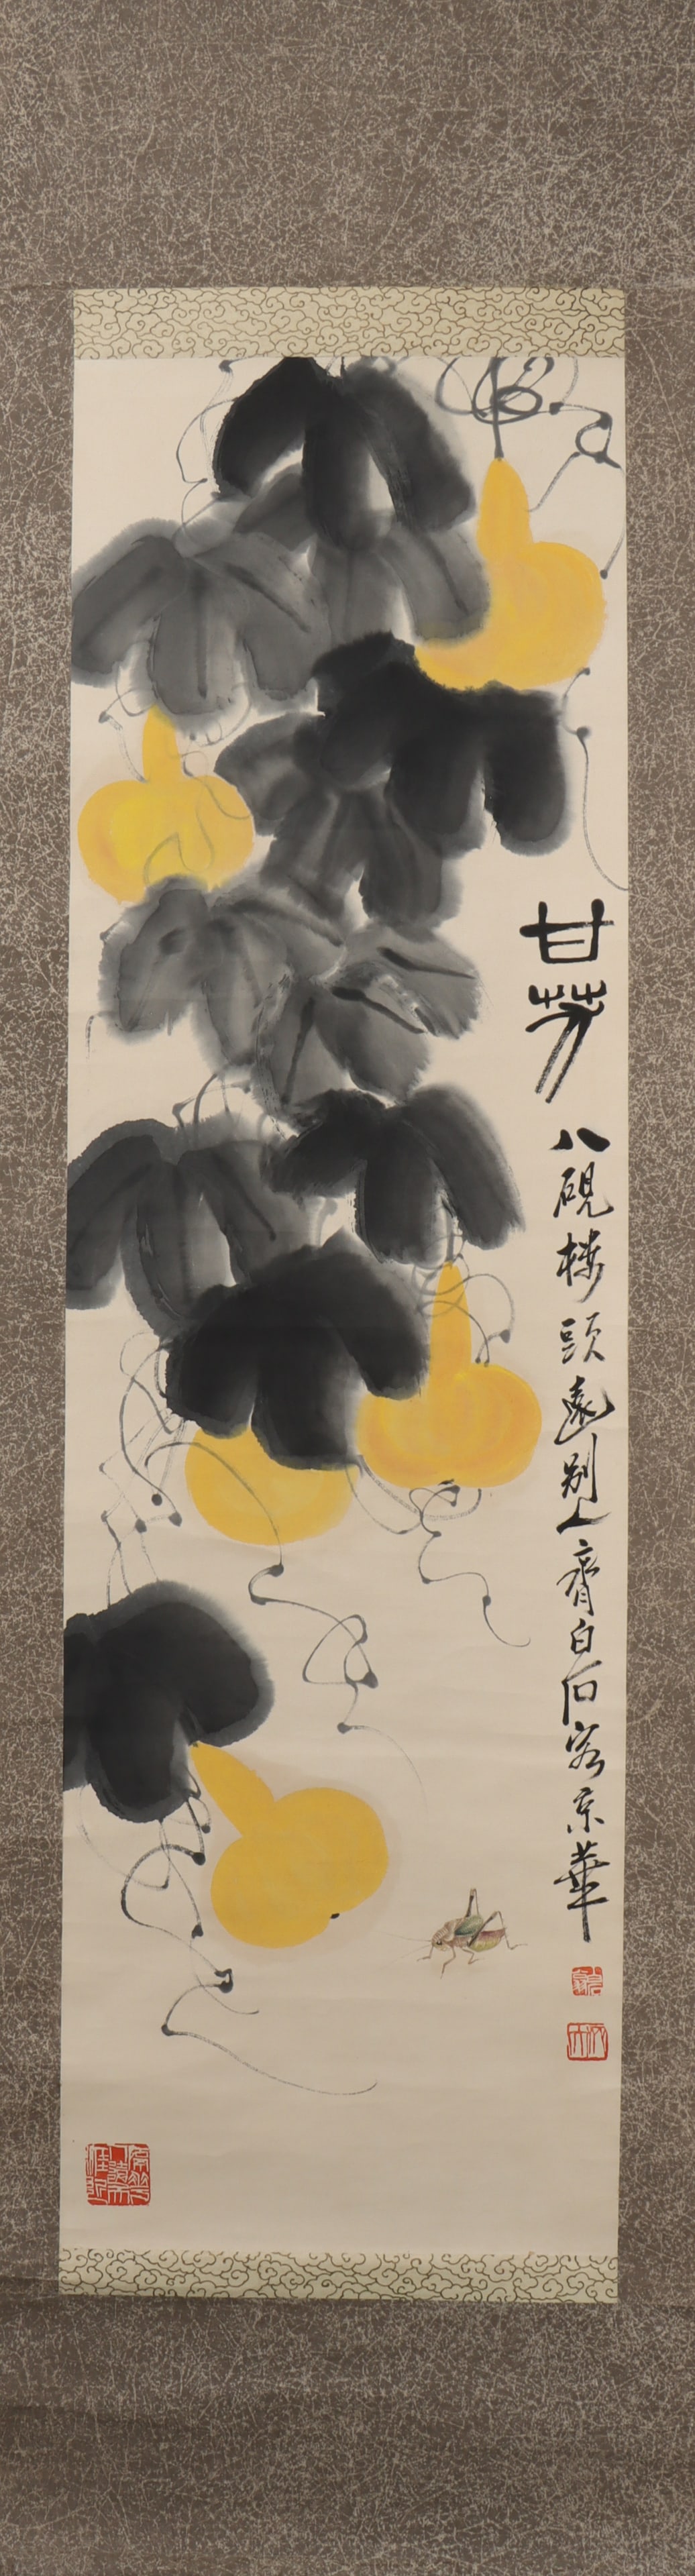 甘芳
八硯樓頭遠別人齊白石客京華